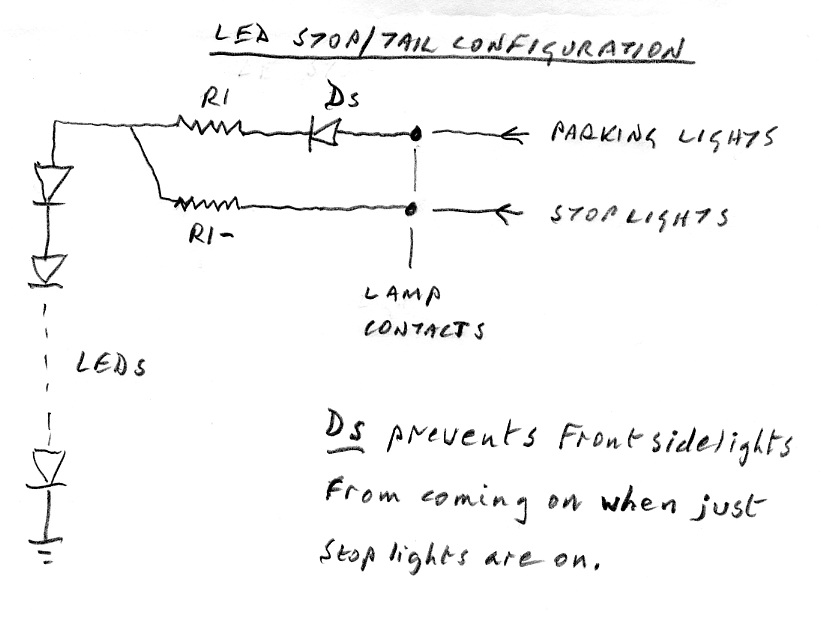 LED STOP/TAIL CONFIGURATION
R1
Ds
PARKING LIGHTS
STOP LIGHTS
R1-
LAMP
CONTACTS
LEDs
Ds prevents Front sidelights
From coming on when just
Stop lights are on.